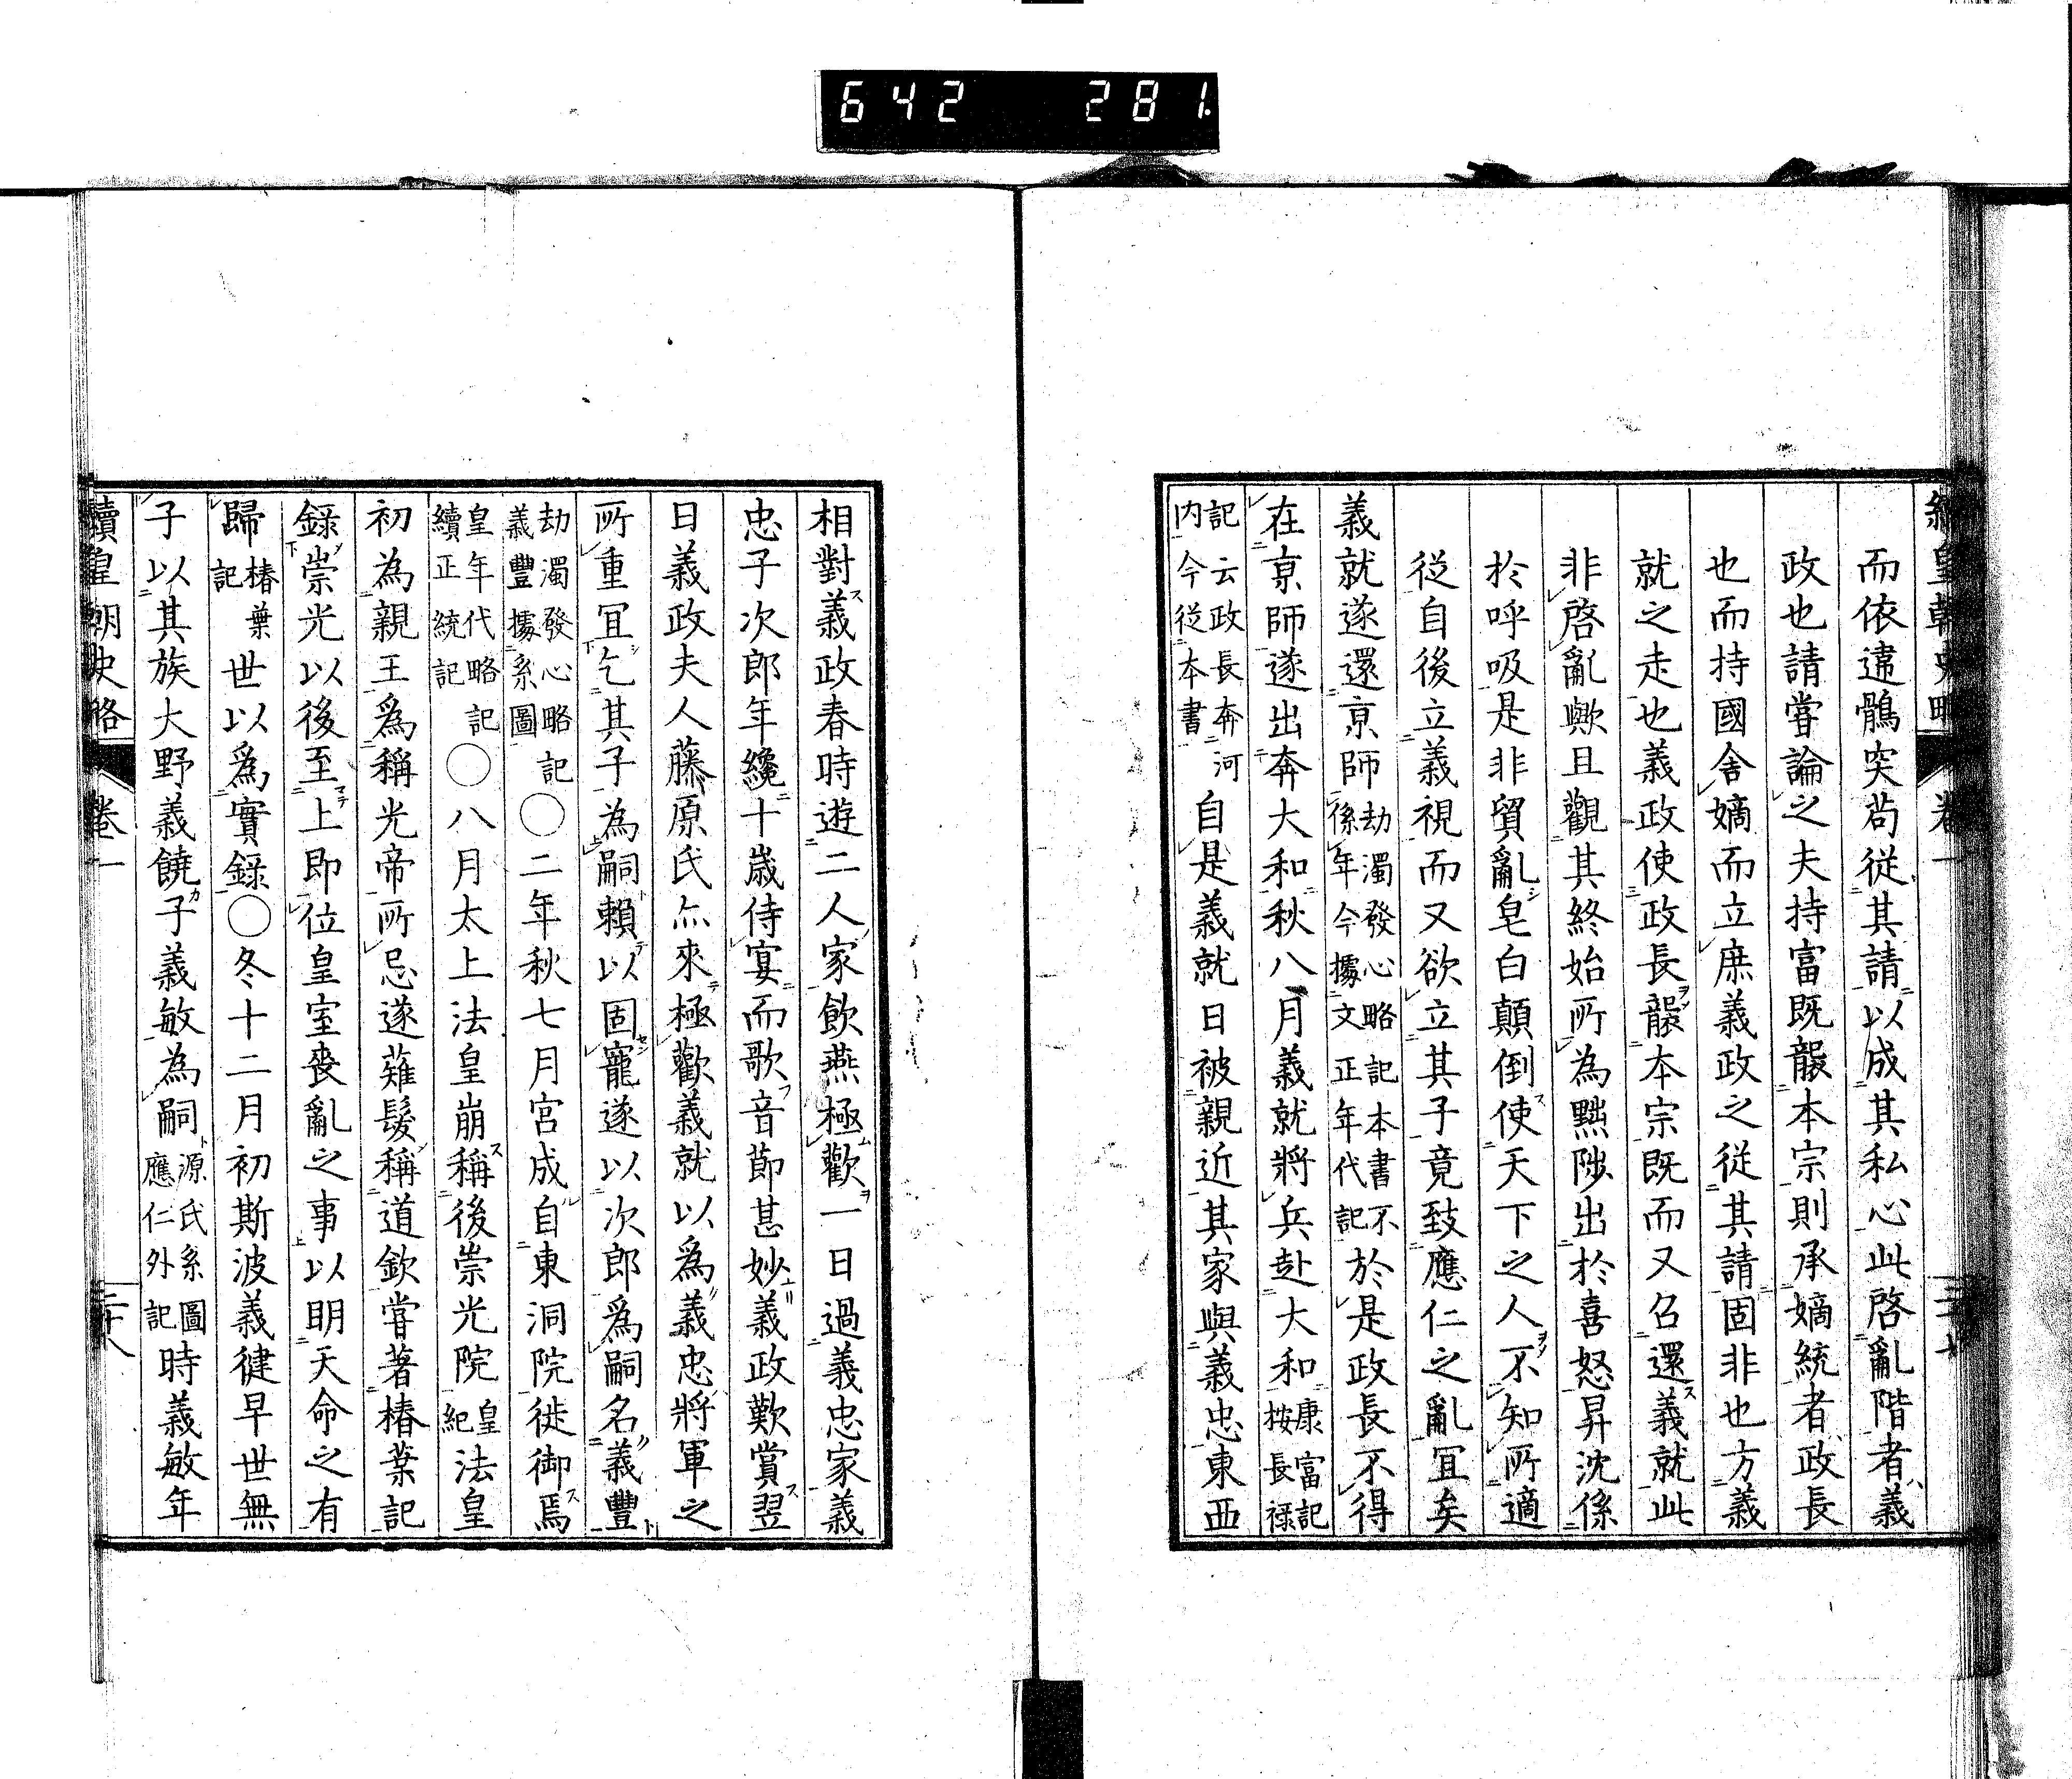 642 281
續皇朝史略 卷一
而依違鶻突苟從其請以成其私心此啓亂階者義
政也請嘗論之夫持富既襲本宗則承嫡統者政長
也而持國舍嫡而立庶義政之從其請固非也方義
就之走也義政使政長襲本宗既而又召還義就此
非啓亂歟且觀其終始所為黜陟出於喜怒昇沈係
於呼吸是非貿亂皂白顛倒使天下之人不知所適
從自後立義視而又欲立其子竟致應仁之亂宜矣
義就遂還京師劫濁發心略記本書不係年今據文正年代記於是政長不得
在京師遂出奔大和秋八月義就將兵赴大和康富記按長祿
記云政長奔河内今從本書自是義就日被親近其家與義忠東西
相對義政春時遊二人家飲燕極歡一日過義忠家義
忠子次郎年纔十歳侍宴而歌音節甚妙義政歎賞翌
日義政夫人藤原氏亦來極歡義就以為義忠將軍之
所重宜乞其子為嗣頼以固寵遂以次郎爲嗣名義豐
劫濁發心略記義豐據系圖〇二年秋七月宮成自東洞院徙御焉
皇年代略記續正統記〇八月太上法皇崩稱後崇光院皇紀法皇
初為親王爲稱光帝所忌遂薙髮稱道欽嘗著椿葉記
錄崇光以後至上即位皇室喪亂之事以明天命之有
歸椿葉記世以爲實錄〇冬十二月初斯波義健早世無
子以其族大野義饒子義敏為嗣源氏系圖應仁外記時義敏年
續皇朝史略 卷一 二十八